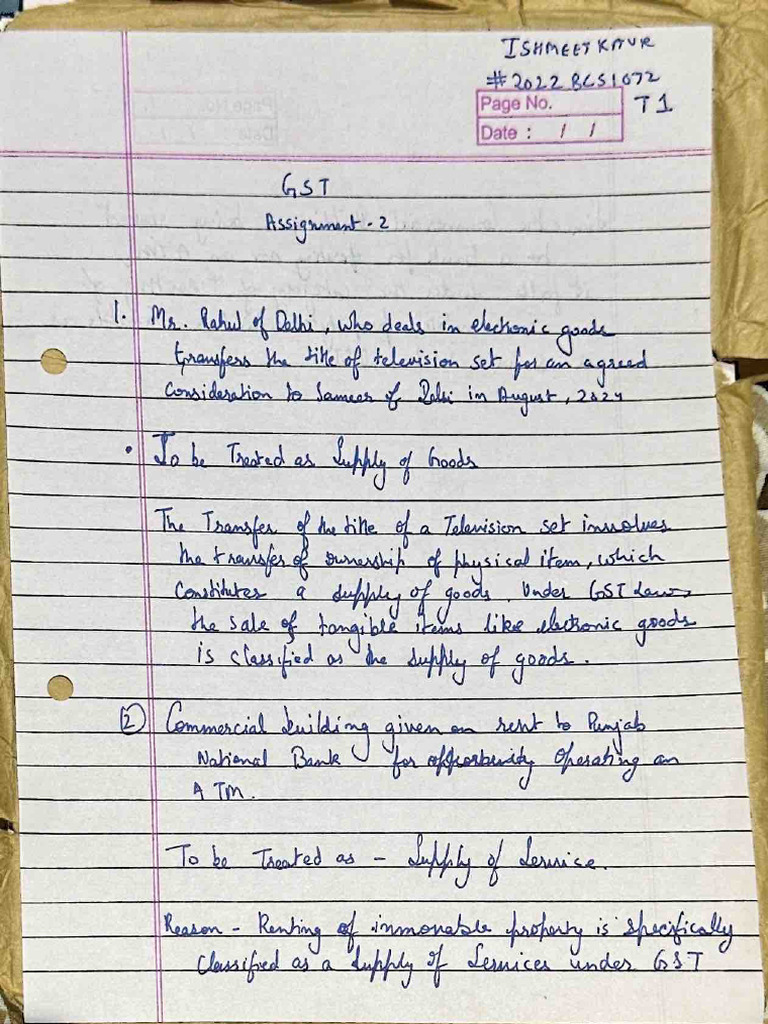 ISHMEET KAUR
#2022BCS1072
T1
Page No.
Date : / /
GST
Assignment - 2
1. Mr. Rahul of Delhi, who deals in electronic goods
transfers the title of television set for an agreed
consideration to Sameer of Delhi in August, 2024
• To be Treated as Supply of Goods
The Transfer of the title of a Television set involves
the transfer of ownership of physical item, which
constitutes a supply of goods. Under GST Law,
the sale of tangible items like electronic goods
is classified as the supply of goods.
2 Commercial building given on rent to Punjab
National Bank for opportunity Operating an
ATM.
To be Treated as - Supply of Service.
Reason - Renting of immovable property is specifically
classified as a supply of Services under GST